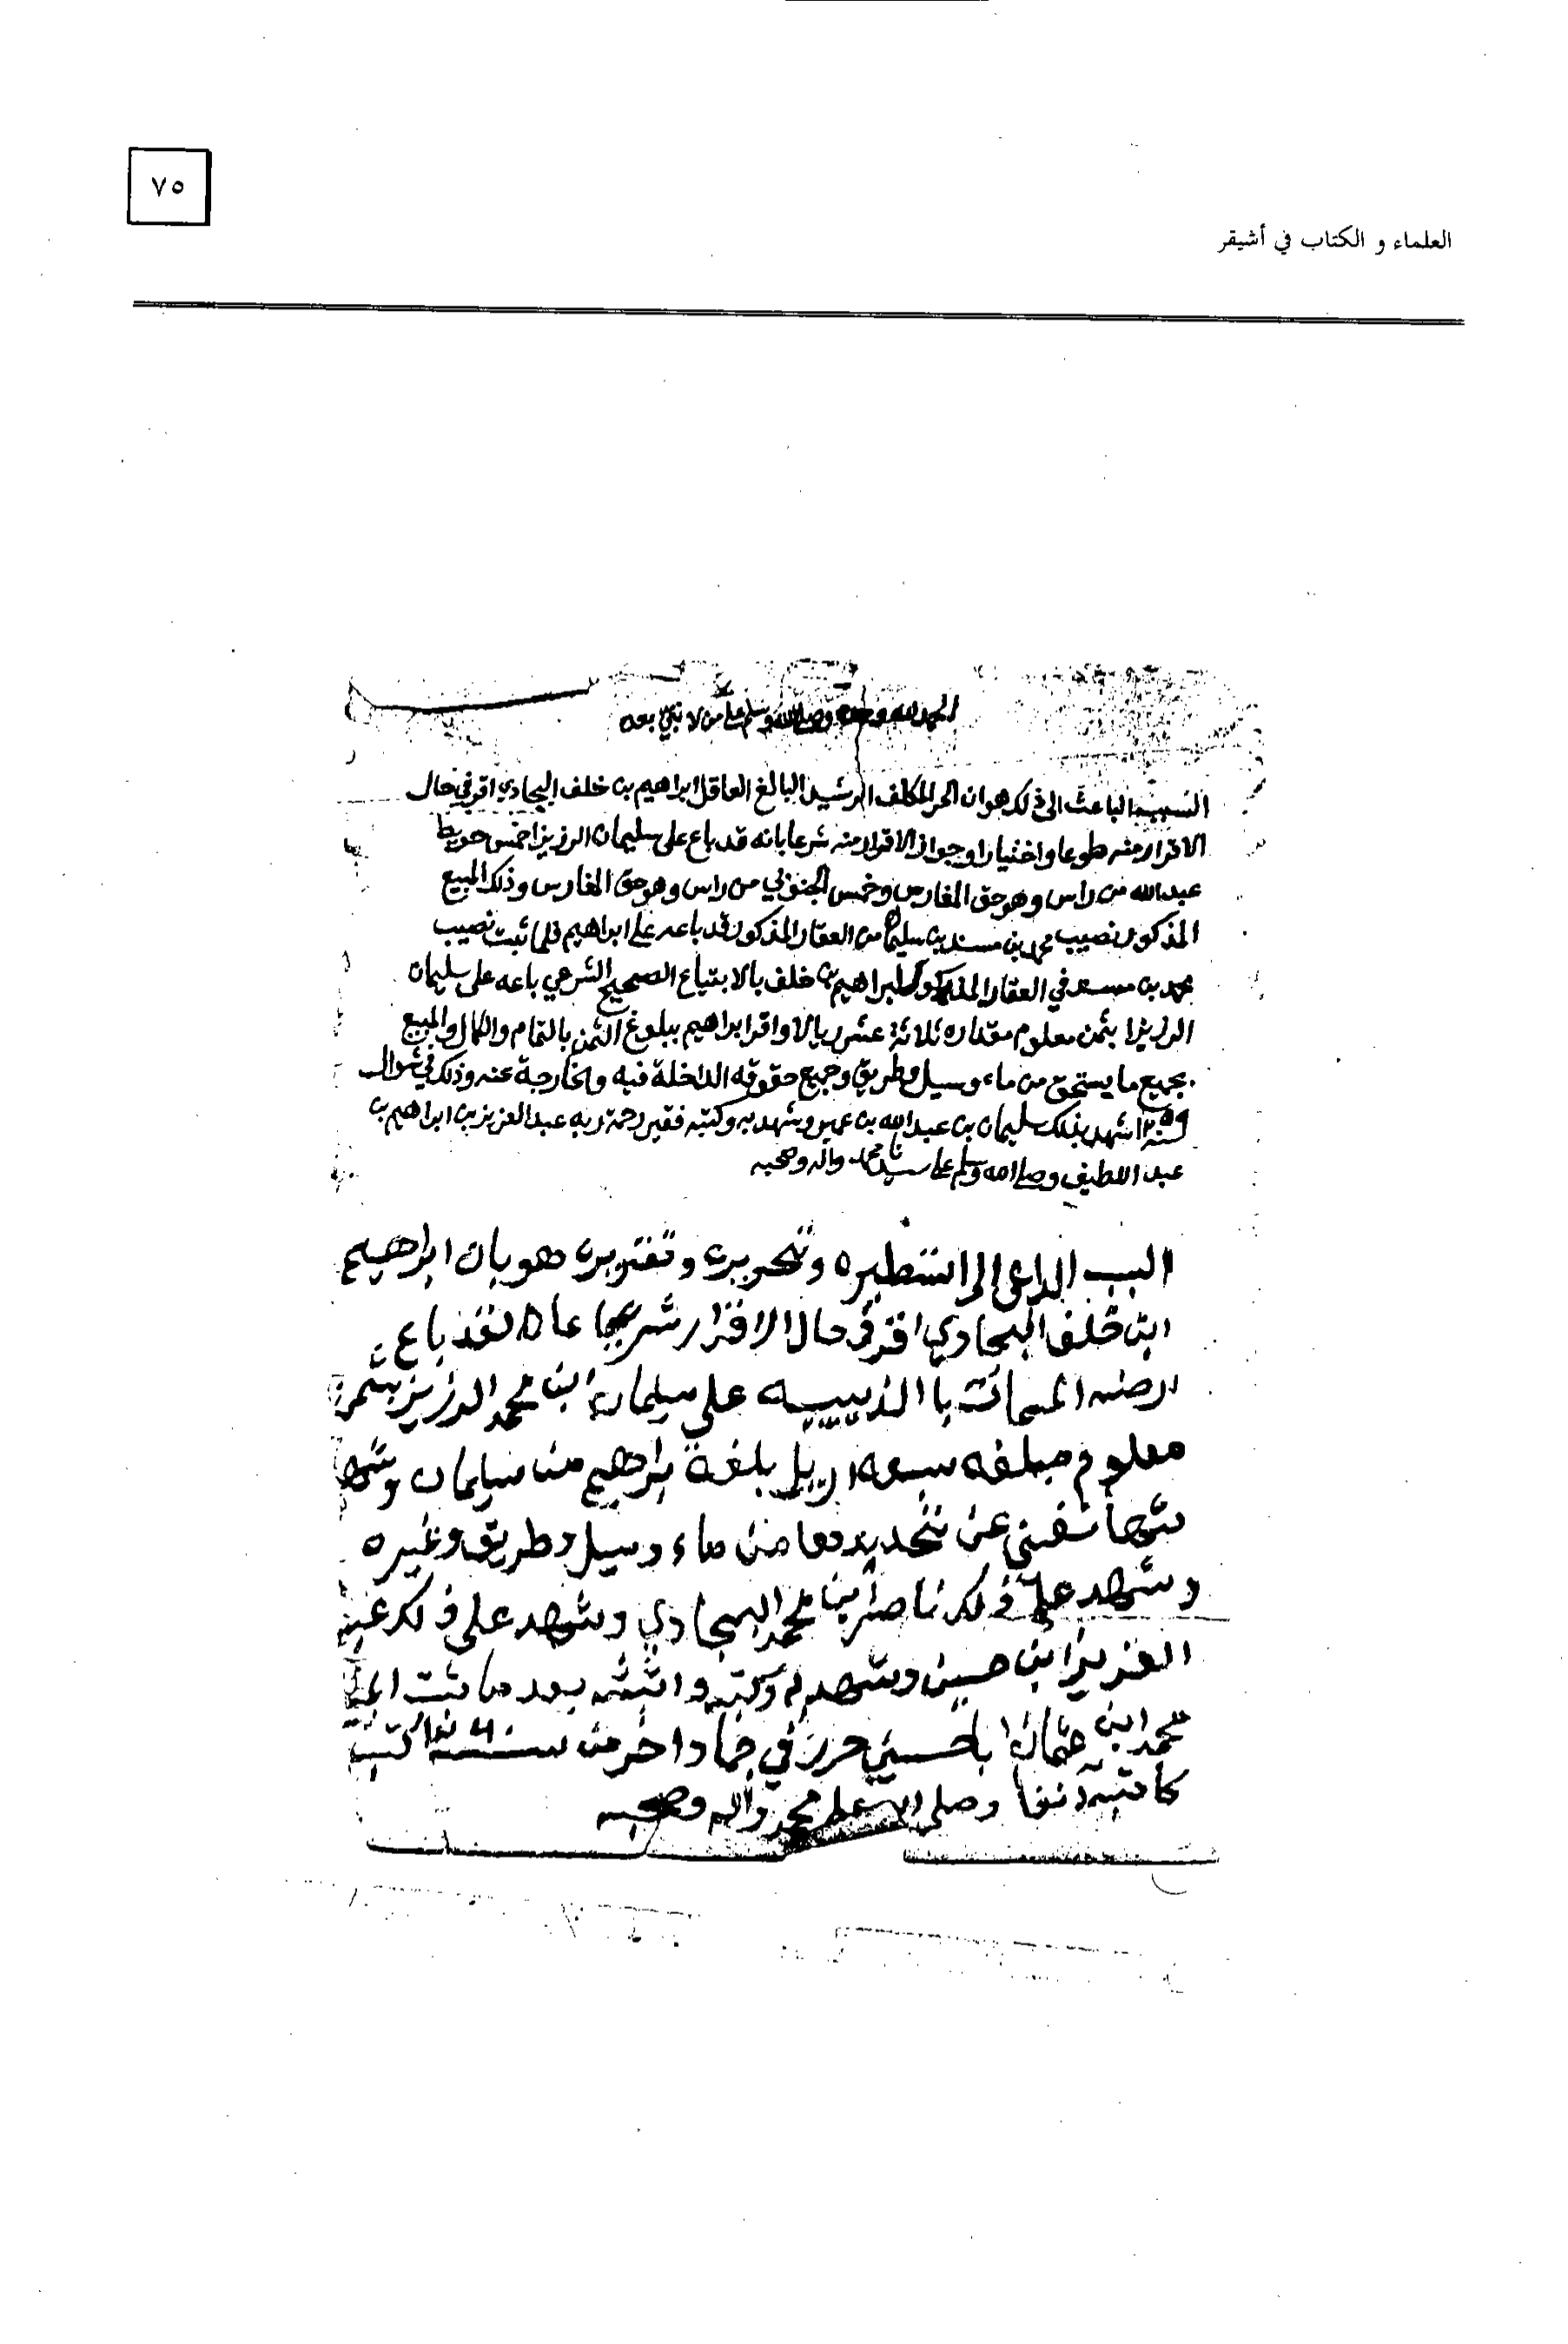 ٧٥
العلماء و الكتاب في أشيقر
الحمد لله وحده وصلى الله وسلم على من لا نبي بعده
السبب الباعث الى ذلك هو ان الحر المكلف الرشيد البالغ العاقل ابراهيم بن خلف البجادي اقر في حال
الاقرار منه طوعا واختيارا وجواز الاقرار منه شرعا بانه قد باع على سليمان الرزيزا خمس حويط
عبدالله من راس وهو حق الفارس وخمس الجنوبي من راس وهو حق الفارس وذلك المبيع
المذكور نصيب محمد بن مسند بن سليمان من العقار المذكور قد باعه على ابراهيم فلما ثبت نصيب
محمد بن مسند في العقار المذكور لبراهيم بن خلف بالابتياع الصحيح الشرعي باعه على سليمان
الرزيزا بثمن معلوم مقداره ثلاثة عشر ريالا واقر ابراهيم ببلوغ الثمن بالتمام والكمال والمبيع
بجميع ما يستحق من ماء وسيل وطريق وجميع حقوقه الداخلة فيه والخارجة عنه وذلك في شوال
سنة شهد بذلك سليمان بن عبدالله بن وشهد به وكتبه فقير رحمة ربه عبدالعزيز بن ابراهيم بن
عبد اللطيف وصلى الله وسلم على سيدنا محمد واله وصحبه
السبب الداعي الى تسطيره وتحريره وتقريره هو بان ابراهيم
ابن خلف البجادي اقر في حال الاقرار شرعا باع
ارضه المسمات با على سليمان ابن محمد الرزيز بثمن
معلوم مبلغه سبعه اريل بلغة براهيم من سليمان
شهرتها تغني عن تحديدها من ماء وسيل وطريق وغيره
وشهد على ذلك ناصر ابن محمد البجادي وشهد على ذلك عبد
العزيز ابن حسين وشهد به وكتبه واثبته بعد ما ثبت
محمد ابن عثمان اباحسين حرر في جماد اخر من سنة
كاتبه انفا وصلى الله على محمد واله وصحبه